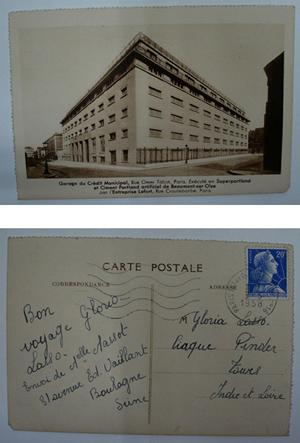 Garage du Crédit Municipal, Rue Omer Talon, Paris. Exécuté en Superportland
et Ciment Portland artificiel de Beaumont-sur-Oise
par l'Entreprise Lafort, Rue Croulebarbe, Paris
CARTE POSTALE
CORRESPONDANCE
ADRESSE
20F
1958
Bon
voyage Gloria
Lasso.
Envoi de Melle Massot
81 avenue Ed. Vaillant
Boulogne
Seine
M Gloria Lasso.
Cirque Pinder
Indre et Loire